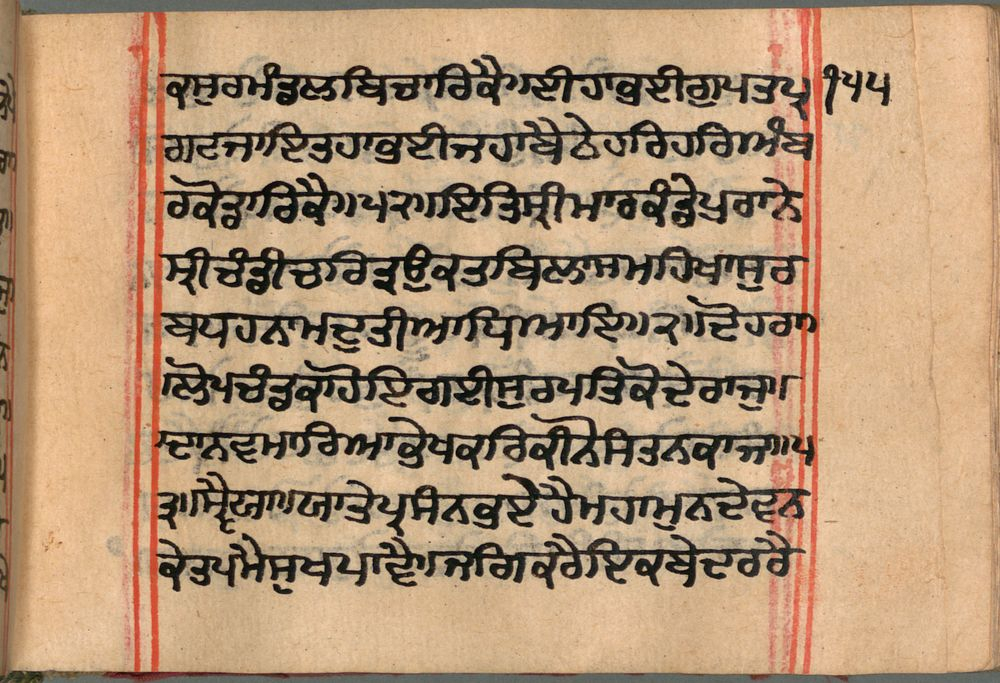 ਕਸੁਰਮੰਡਲਬਿਚਾਰਿਕੈ॥ਈਹਾਕੁਈਗੁਪਤਪ੍ਰ ੧੫੫
ਗਟਜਾਇਤਹਾਕੁਈਜਹਾਬੈਠੇਹਰਿਹਰਿਅੰਬ
ਰਕੋਡਾਰਿਕੈ॥੫੨॥ਇਤਿਸ੍ਰੀਮਾਰਕੰਡੇਪੁਰਾਨੇ
ਸ੍ਰੀਚੰਡੀਚਰਿਤ੍ਰਉਕਤਬਿਲਾਸਮਹਿਖਾਸੁਰ
ਬਧਹਨਾਮਦੁਤੀਆਧਿਆਇ॥੨॥ਦੋਹਰਾ॥
ਲੋਪਚੰਡਕਾਹੋਇਗਈਸੁਰਪਤਿਕੋਦੇਰਾਜੁ॥
ਦਾਨਵਮਾਰਿਅਭੇਖਕਰਿਕੀਨੇਸੰਤਨਕਾਜ॥੫
੩॥ਸ੍ਵੈਯਾ॥ਯਾਤੇਪ੍ਰਸੰਨਭਏਹੈਮਹਾਮੁਨਦੇਵਨ
ਕੇਤਪਮੈਸੁਖਪਾਵੈ॥ਜਗਿਕਰੈਇਕਬੇਦਰਰੈ